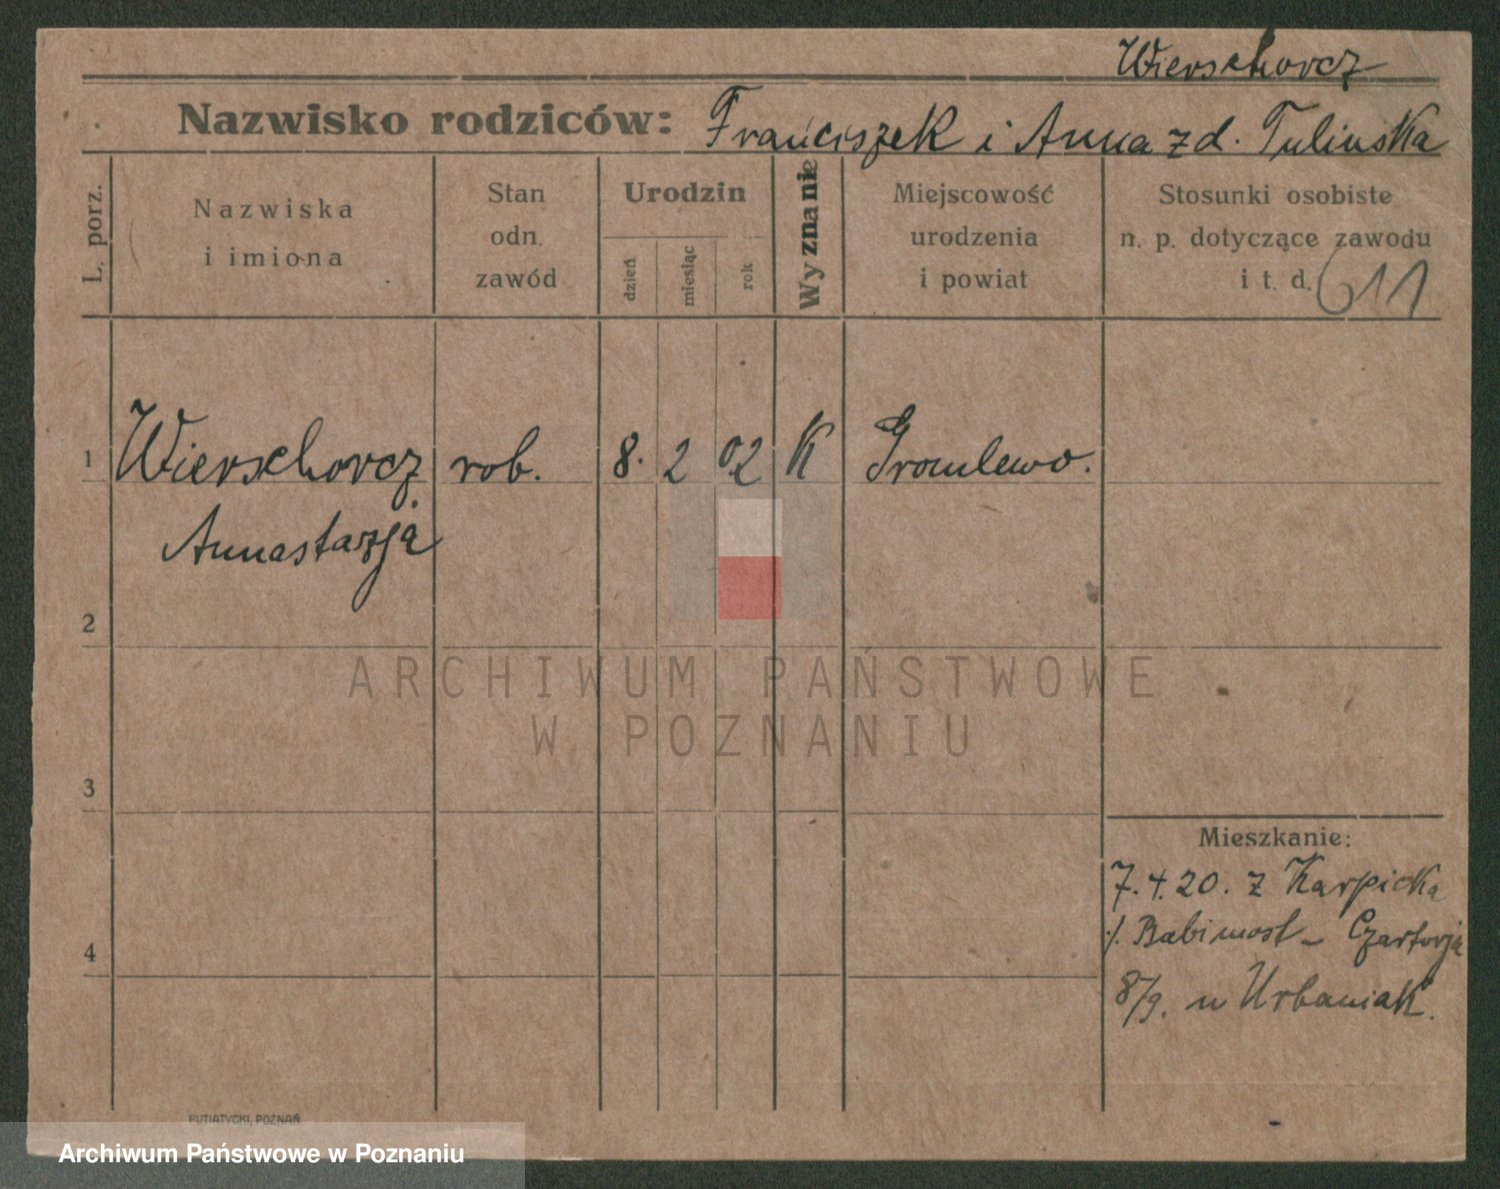 Wierschorcz
Nazwisko rodziców: Franciszek i Anna z d. Tulinska
L. porz.
Nazwiska
i imiona
Stan
odn.
zawód
Urodzin
dzień
miesiąc
rok
Wyznanie
Miejscowość
urodzenia
i powiat
Stosunki osobiste
n. p. dotyczące zawodu
i t. d. 611
1 Wierschorcz rob. 8. 2 02 K Gromlewo.
Annastazja
2
ARCHIWUM PAŃSTWOWE
W POZNANIU
3
Mieszkanie:
7.4.20. z Karpicka
/. Babimost - Czartorja
4
8/9. u Urbaniak.
PUTIATYCKI, POZNAŃ
Archiwum Państwowe w Poznaniu